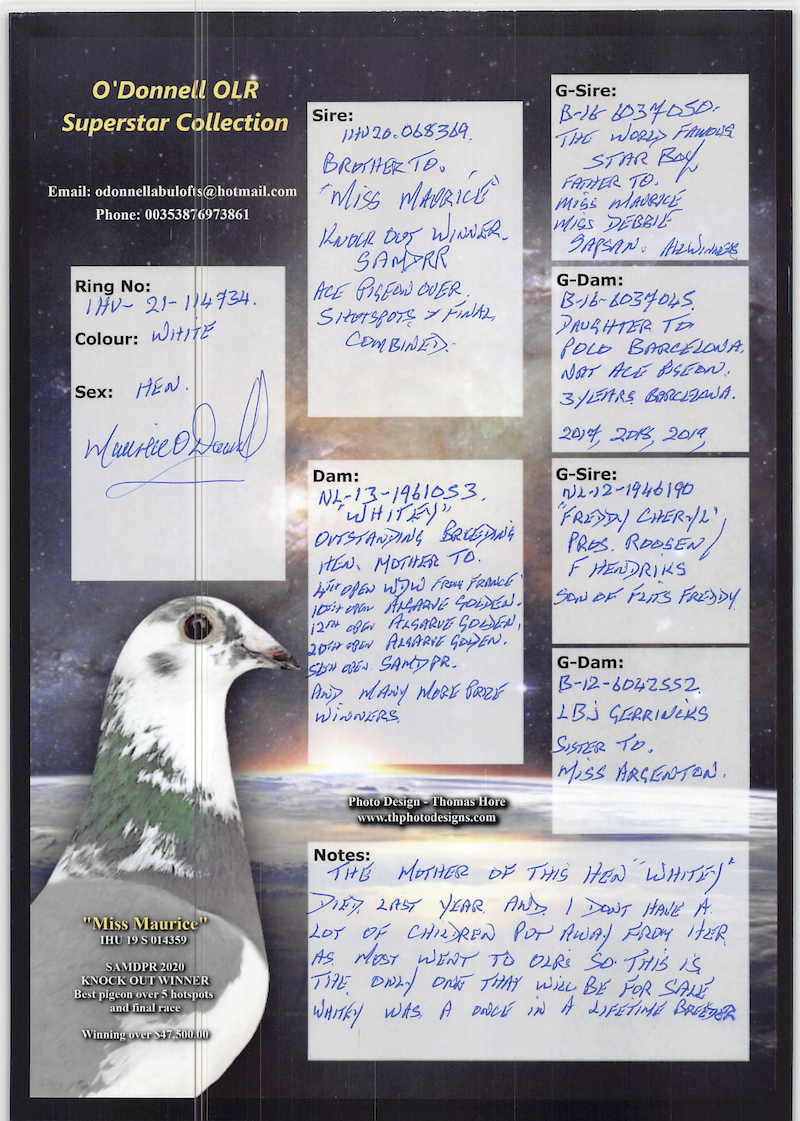 O'Donnell OLR
Superstar Collection
Email: odonnellabulofts@hotmail.com
Phone: 00353876973861
Ring No:
IHU- 21-114734.
Colour: WHITE
Sex: HEN.
Maurice O'Donnell
Sire:
IHU20.068369.
BROTHER TO.
"MISS MAURICE"
KNOCK OUT WINNER.
SAMDPR
ACE PIGEON OVER.
5 HOTSPOTS & FINAL
COMBINED.
Dam:
NL-13-1961053.
"WHITEY"
OUTSTANDING BREEDING
HEN. MOTHER TO.
4TH OPEN WDW FROM FRANCE
10TH OPEN ALGARVE GOLDEN.
12TH OPEN ALGARVE GOLDEN.
20TH OPEN ALGARVE GOLDEN.
OPEN. SAMDPR.
AND MANY MORE PRIZE
WINNERS
G-Sire:
B-16-6037050.
THE WORLD FAMOUS
STAR BOY
FATHER TO.
MISS MAURICE
MISS DEBBIE
SAPSAN. ALL WINNERS
G-Dam:
B-16-6037045.
DAUGHTER TO
POLO BARCELONA.
NAT ACE PIGEON.
3 YEARS BARCELONA.
2017, 2018, 2019,
G-Sire:
NL-12-1946190
"FREDDY CHERYL'
PROS. ROOSEN/
F HENDRIKS
SON OF FLITS FREDDY
G-Dam:
B-12-6042552
LBJ GERRINCKS
SISTER TO.
MISS ARGENTON.
Photo Design - Thomas Hore
www.thphotodesigns.com
Notes:
THE MOTHER OF THIS HEN "WHITEY"
DIED LAST YEAR AND I DON'T HAVE A
LOT OF CHILDREN PUT AWAY FROM HER
AS MOST WENT TO OLR'S SO THIS IS
THE ONLY ONE THAT WILL BE FOR SALE
WHITEY WAS A ONCE IN A LIFETIME BREEDER
"Miss Maurice"
IHU 19 S 014359
SAMDPR 2020
KNOCK OUT WINNER
Best pigeon over 5 hotspots
and final race
Winning over $47,500.00